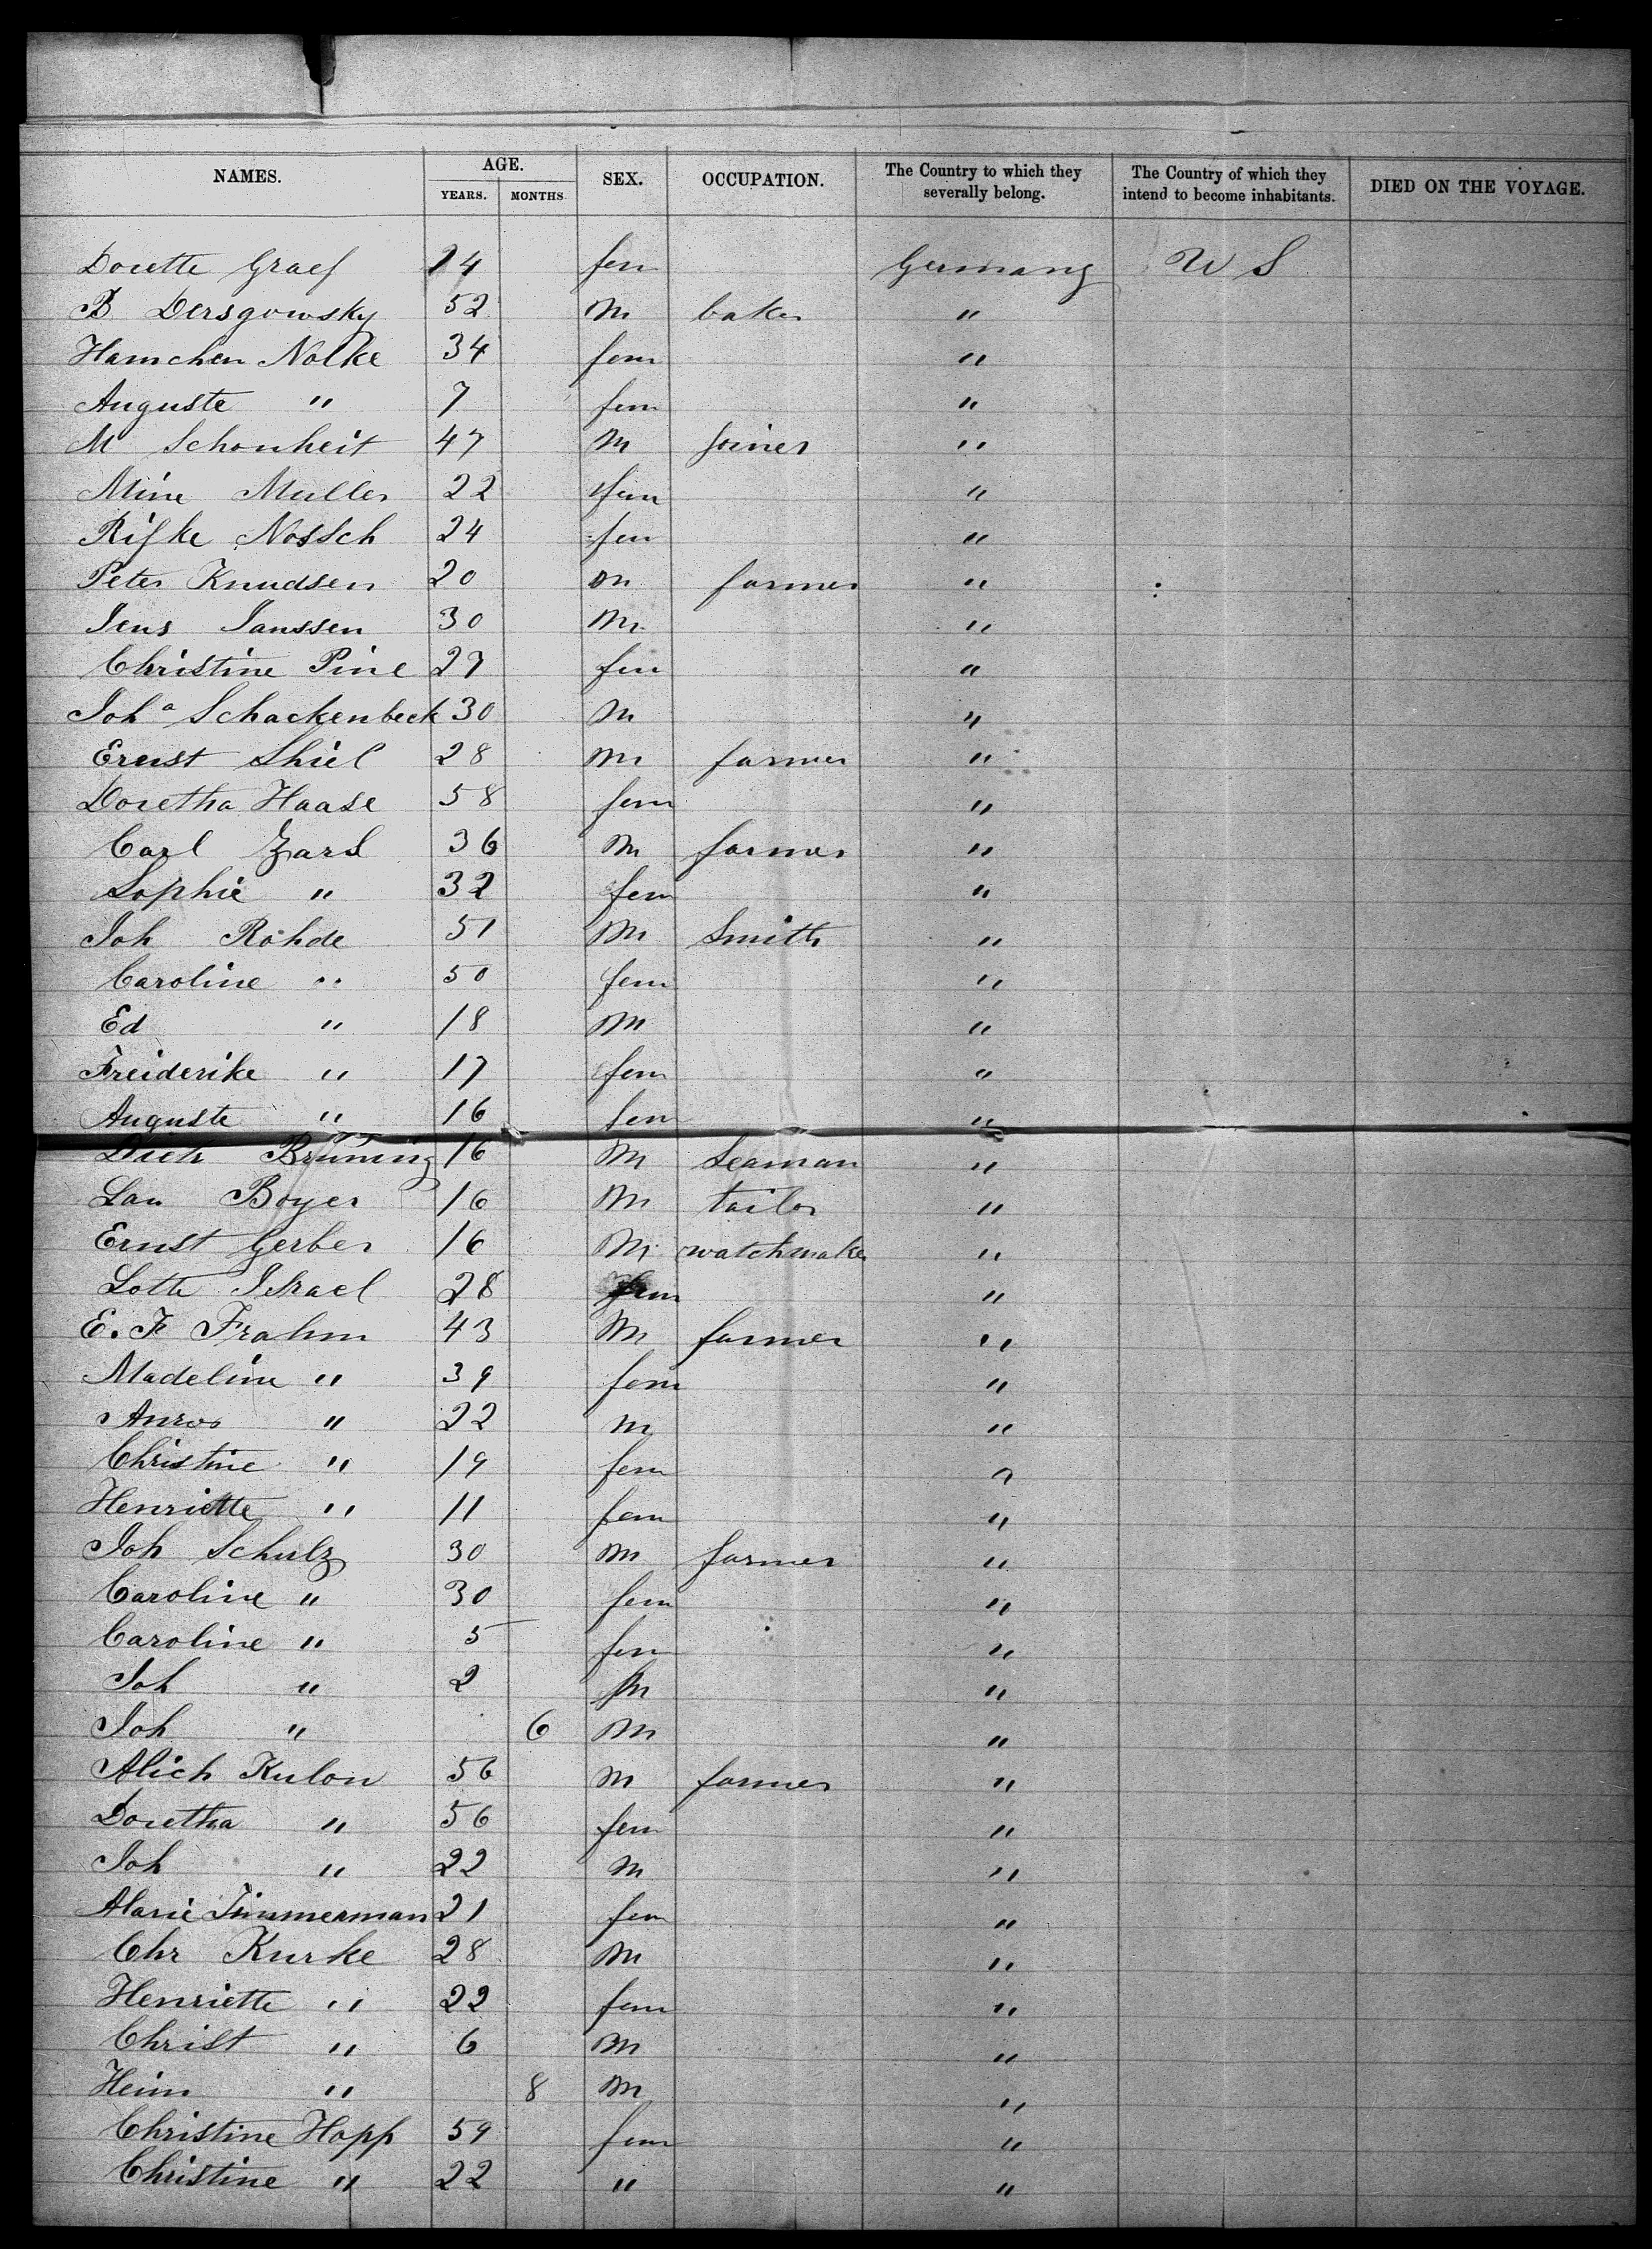 NAMES. AGE. SEX. OCCUPATION. The Country to which they severally belong. The Country of which they intend to become inhabitants. DIED ON THE VOYAGE.
YEARS. MONTHS
Dorette Graef 24 fem Germany U S
B Dersgowsky 52 M baker "
Hamchen Nolke 34 fem "
Auguste " 7 fem "
M Schonheit 47 M joiner "
Mine Muller 22 fem "
Rifke Nossch 24 fem "
Peter Knudsen 20 M farmer "
Jens Janssen 30 M "
Christine Pine 27 fem "
Joha Schackenbeck 30 M "
Ernst Shiel 28 M farmer "
Doretha Haase 58 fem "
Carl Zars 36 M farmer "
Sophie " 32 fem "
Joh Rohde 51 M Smith "
Caroline " 50 fem "
Ed " 18 M "
Freiderike " 17 fem "
Auguste " 16 fem "
Dietr Bruning 16 M Seaman "
Lau Boyer 16 M tailor "
Ernst Gerber 16 M watchmaker "
Lotte Israel 28 fem "
E. F Frahm 43 M farmer "
Madeline " 39 fem "
" 22 M "
Christine " 19 fem "
Henriette " 11 fem "
Joh Schulz 30 M farmer "
Caroline " 30 fem "
Caroline " 5 fem "
Joh " 2 M "
Joh " 6 M "
Alich Kulon 56 M farmer "
Doretha " 56 fem "
Joh " 22 M "
Marie Timmerman 21 fem "
Chr Kurke 28 M "
Henriette " 22 fem "
Christ " 6 M "
Heinr " 8 M "
Christine Hopp 59 fem "
Christine " 22 " "